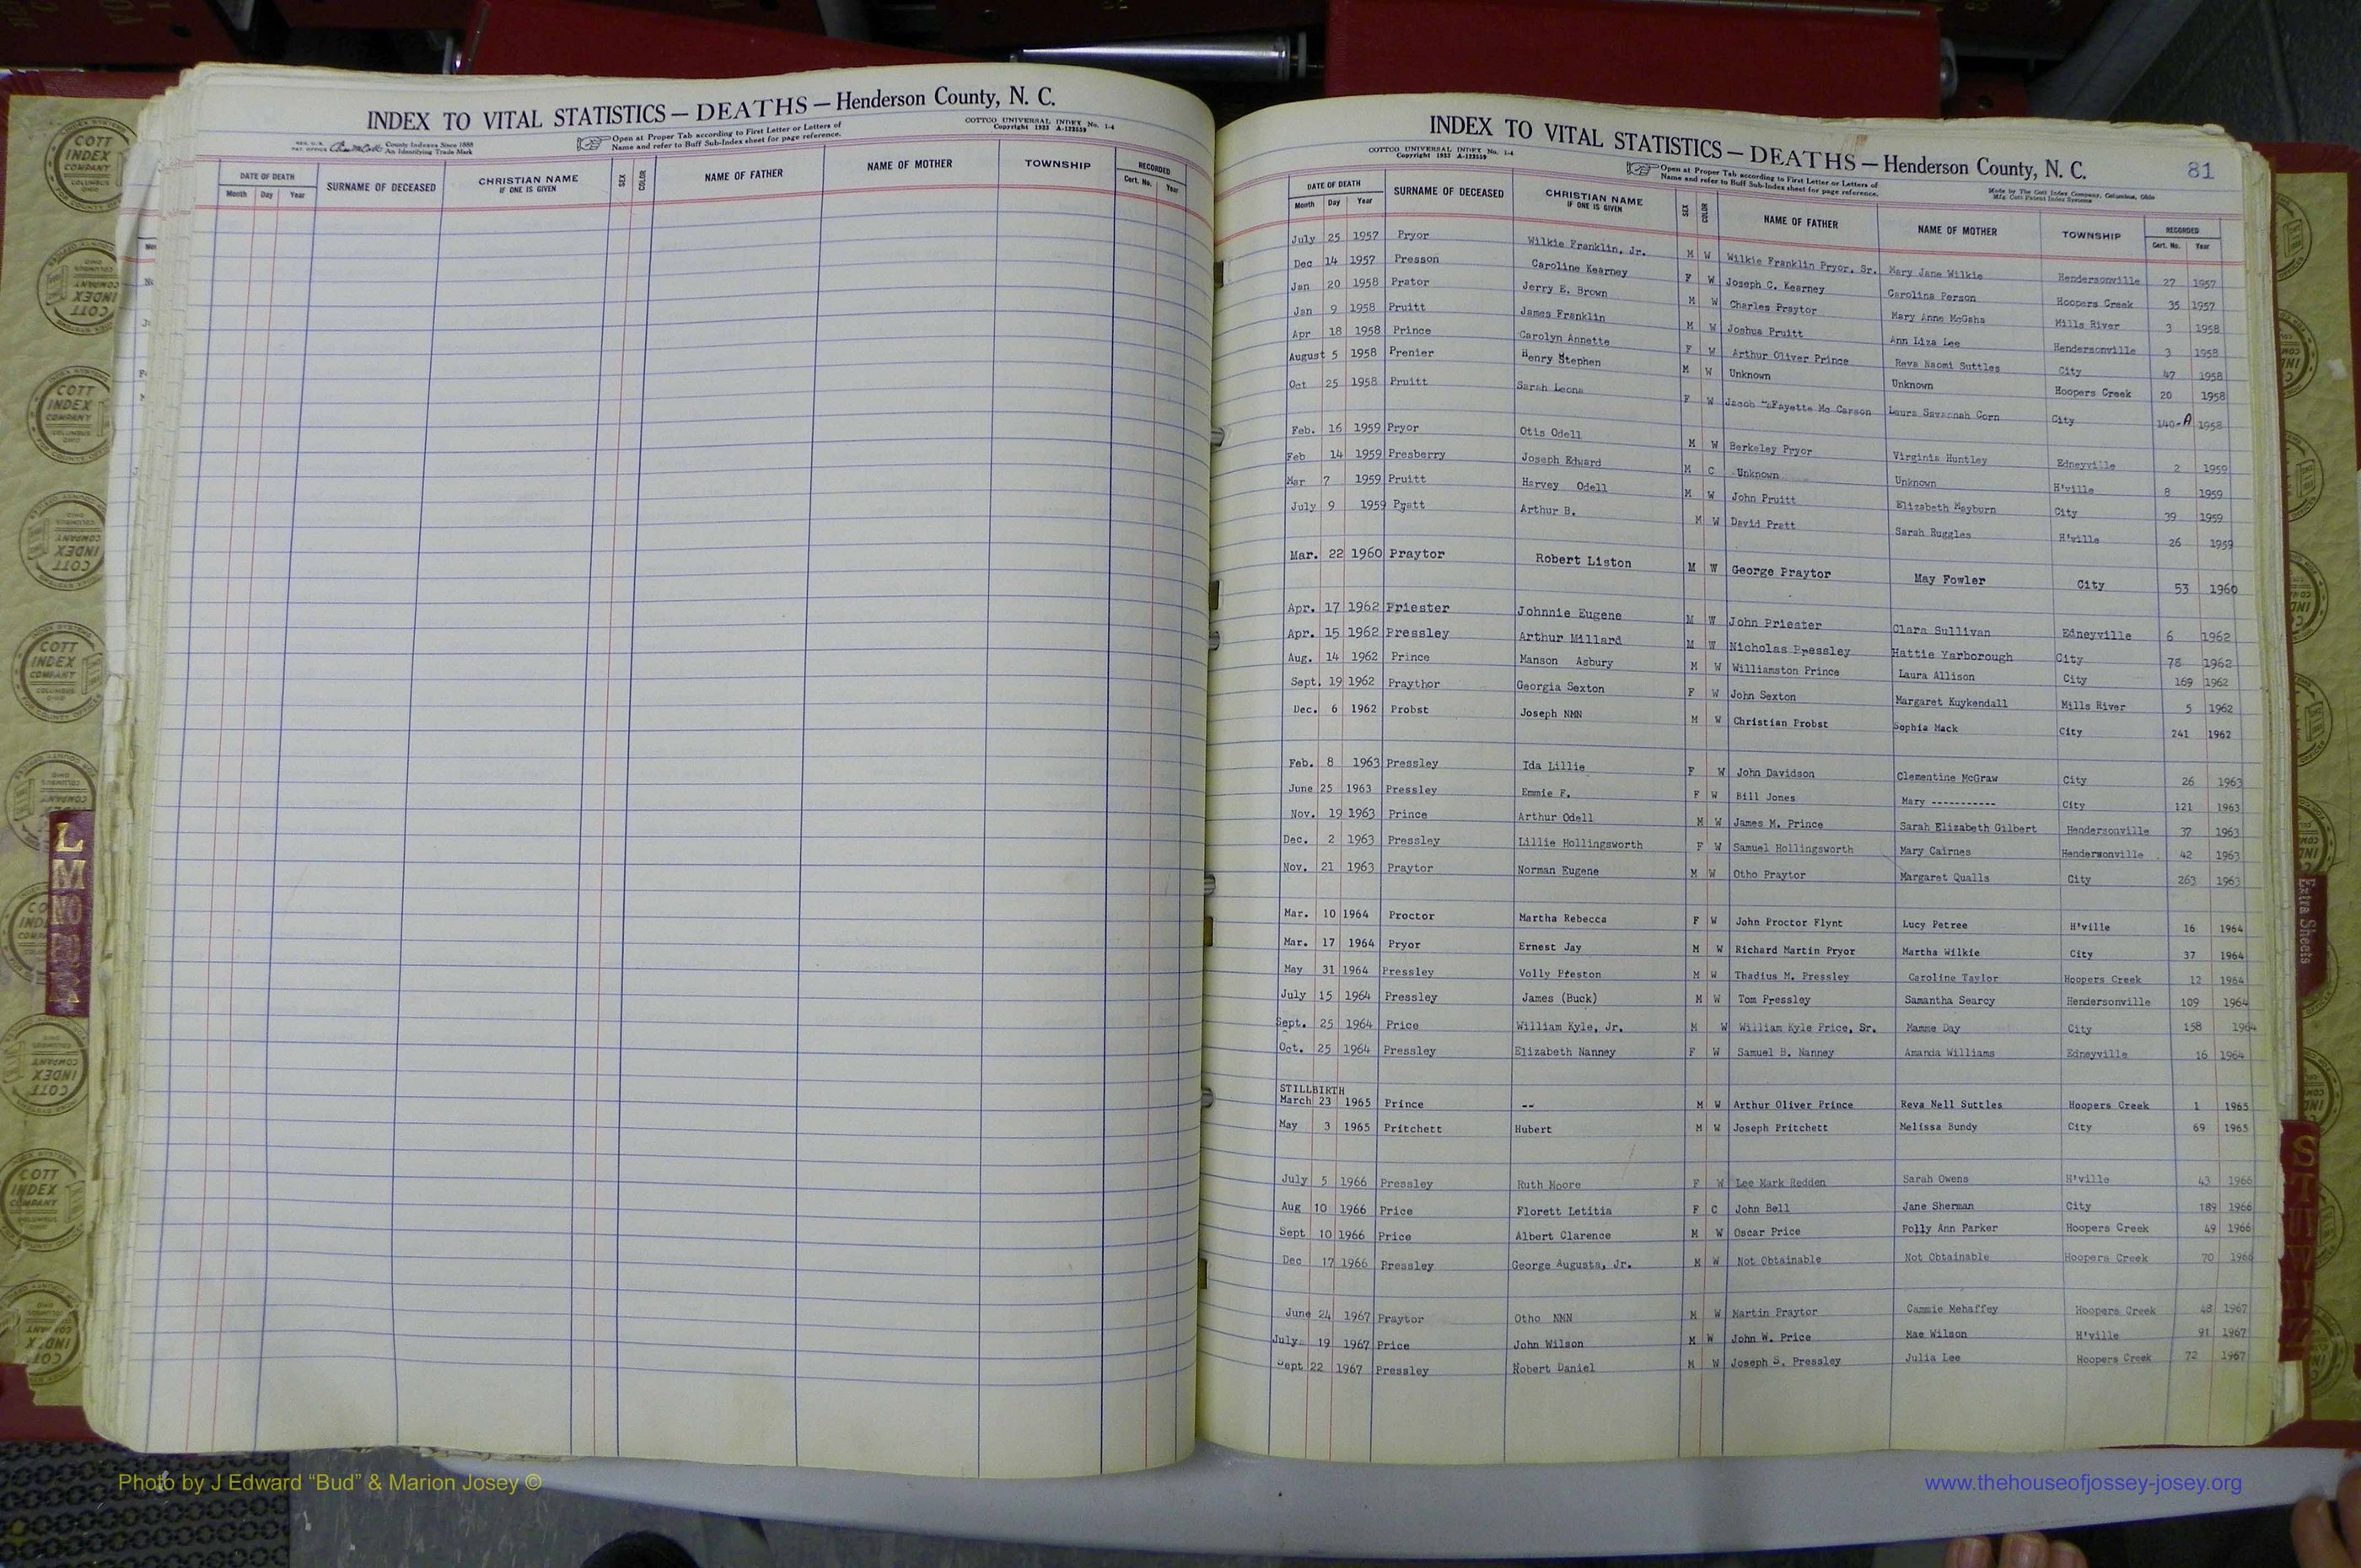 INDEX TO VITAL STATISTICS — DEATHS — Henderson County, N. C.
COTTCO UNIVERSAL INDEX No. 1-4
Copyright 1933 A-123559
County Indexes Since 1888
An Identifying Trade Mark
Open at Proper Tab according to First Letter or Letters of
Name and refer to Buff Sub-Index sheet for page reference.
DATE OF DEATH SURNAME OF DECEASED CHRISTIAN NAME IF ONE IS GIVEN SEX COLOR NAME OF FATHER NAME OF MOTHER TOWNSHIP RECORDED
Month Day Year Cert. No. Year
INDEX TO VITAL STATISTICS — DEATHS — Henderson County, N. C. 81
COTTCO UNIVERSAL INDEX No. 1-4
Copyright 1933 A-123559
Open at Proper Tab according to First Letter or Letters of
Name and refer to Buff Sub-Index sheet for page reference.
Made by The Cott Index Company, Columbus, Ohio
Mfg Cott Patent Index Systems
DATE OF DEATH SURNAME OF DECEASED CHRISTIAN NAME IF ONE IS GIVEN SEX COLOR NAME OF FATHER NAME OF MOTHER TOWNSHIP RECORDED
Month Day Year Cert. No. Year
July 25 1957 Pryor Wilkie Franklin, Jr. M W Wilkie Franklin Pryor, Sr. Mary Jane Wilkie Hendersonville 27 1957
Dec 14 1957 Presson Caroline Kearney F W Joseph C. Kearney Carolina Person Hoopers Creek 35 1957
Jan 20 1958 Prator Jerry E. Brown M W Charles Praytor Mary Anne McGaha Mills River 3 1958
Jan 9 1958 Pruitt James Franklin M W Joshua Pruitt Ann Liza Lee Hendersonville 3 1958
Apr 18 1958 Prince Carolyn Annette F W Arthur Oliver Prince Reva Naomi Suttles City 47 1958
August 5 1958 Prenier Henry Stephen M W Unknown Unknown Hoopers Creek 20 1958
Oct 25 1958 Pruitt Sarah Leona F W Jacob LaFayette Mc Carson Laura Savannah Corn City 140-A 1958
Feb. 16 1959 Pryor Otis Odell M W Berkeley Pryor Virginia Huntley Edneyville 2 1959
Feb 14 1959 Presberry Joseph Edward M C Unknown Unknown H'ville 8 1959
Mar 7 1959 Pruitt Harvey Odell M W John Pruitt Elizabeth Mayburn City 39 1959
July 9 1959 Pyatt Arthur B. M W David Pratt Sarah Ruggles H'ville 26 1959
Mar. 22 1960 Praytor Robert Liston M W George Praytor May Fowler City 53 1960
Apr. 17 1962 Priester Johnnie Eugene M W John Priester Clara Sullivan Edneyville 6 1962
Apr. 15 1962 Pressley Arthur Millard M W Nicholas Pressley Hattie Yarborough City 78 1962
Aug. 14 1962 Prince Manson Asbury M W Williamston Prince Laura Allison City 169 1962
Sept. 19 1962 Praythor Georgia Sexton F W John Sexton Margaret Kuykendall Mills River 5 1962
Dec. 6 1962 Probst Joseph NMN M W Christian Probst Sophia Mack City 241 1962
Feb. 8 1963 Pressley Ida Lillie F W John Davidson Clementine McGraw City 26 1963
June 25 1963 Pressley Emmie F. F W Bill Jones Mary ----------- City 121 1963
Nov. 19 1963 Prince Arthur Odell M W James M. Prince Sarah Elizabeth Gilbert Hendersonville 37 1963
Dec. 2 1963 Pressley Lillie Hollingsworth F W Samuel Hollingsworth Mary Cairnes Hendersonville 42 1963
Nov. 21 1963 Praytor Norman Eugene M W Otho Praytor Margaret Qualls City 263 1963
Mar. 10 1964 Proctor Martha Rebecca F W John Proctor Flynt Lucy Petree H'ville 16 1964
Mar. 17 1964 Pryor Ernest Jay M W Richard Martin Pryor Martha Wilkie City 37 1964
May 31 1964 Pressley Volly Preston M W Thadius M. Pressley Caroline Taylor Hoopers Creek 12 1964
July 15 1964 Pressley James (Buck) M W Tom Pressley Samantha Searcy Hendersonville 109 1964
Sept. 25 1964 Price William Kyle, Jr. M W William Kyle Price, Sr. Mamme Day City 158 1964
Oct. 25 1964 Pressley Elizabeth Nanney F W Samuel B. Nanney Amanda Williams Edneyville 16 1964
STILLBIRTH
March 23 1965 Prince -- M W Arthur Oliver Prince Reva Nell Suttles Hoopers Creek 1 1965
May 3 1965 Pritchett Hubert M W Joseph Pritchett Melissa Bundy City 69 1965
July 5 1966 Pressley Ruth Moore F W Lee Mark Redden Sarah Owens H'ville 43 1966
Aug 10 1966 Price Florett Letitia F C John Bell Jane Sherman City 189 1966
Sept 10 1966 Price Albert Clarence M W Oscar Price Polly Ann Parker Hoopers Creek 49 1966
Dec 17 1966 Pressley George Augusta, Jr. M W Not Obtainable Not Obtainable Hoopers Creek 70 1966
June 24 1967 Praytor Otho NMN M W Martin Praytor Cammie Mehaffey Hoopers Creek 48 1967
July 19 1967 Price John Wilson M W John W. Price Mae Wilson H'ville 91 1967
Sept 22 1967 Pressley Robert Daniel M W Joseph S. Pressley Julia Lee Hoopers Creek 72 1967
COTT INDEX COMPANY COLUMBUS OHIO
L
M
Extra Sheets
S
T
Photo by J Edward “Bud” & Marion Josey ©
www.thehouseofjossey-josey.org